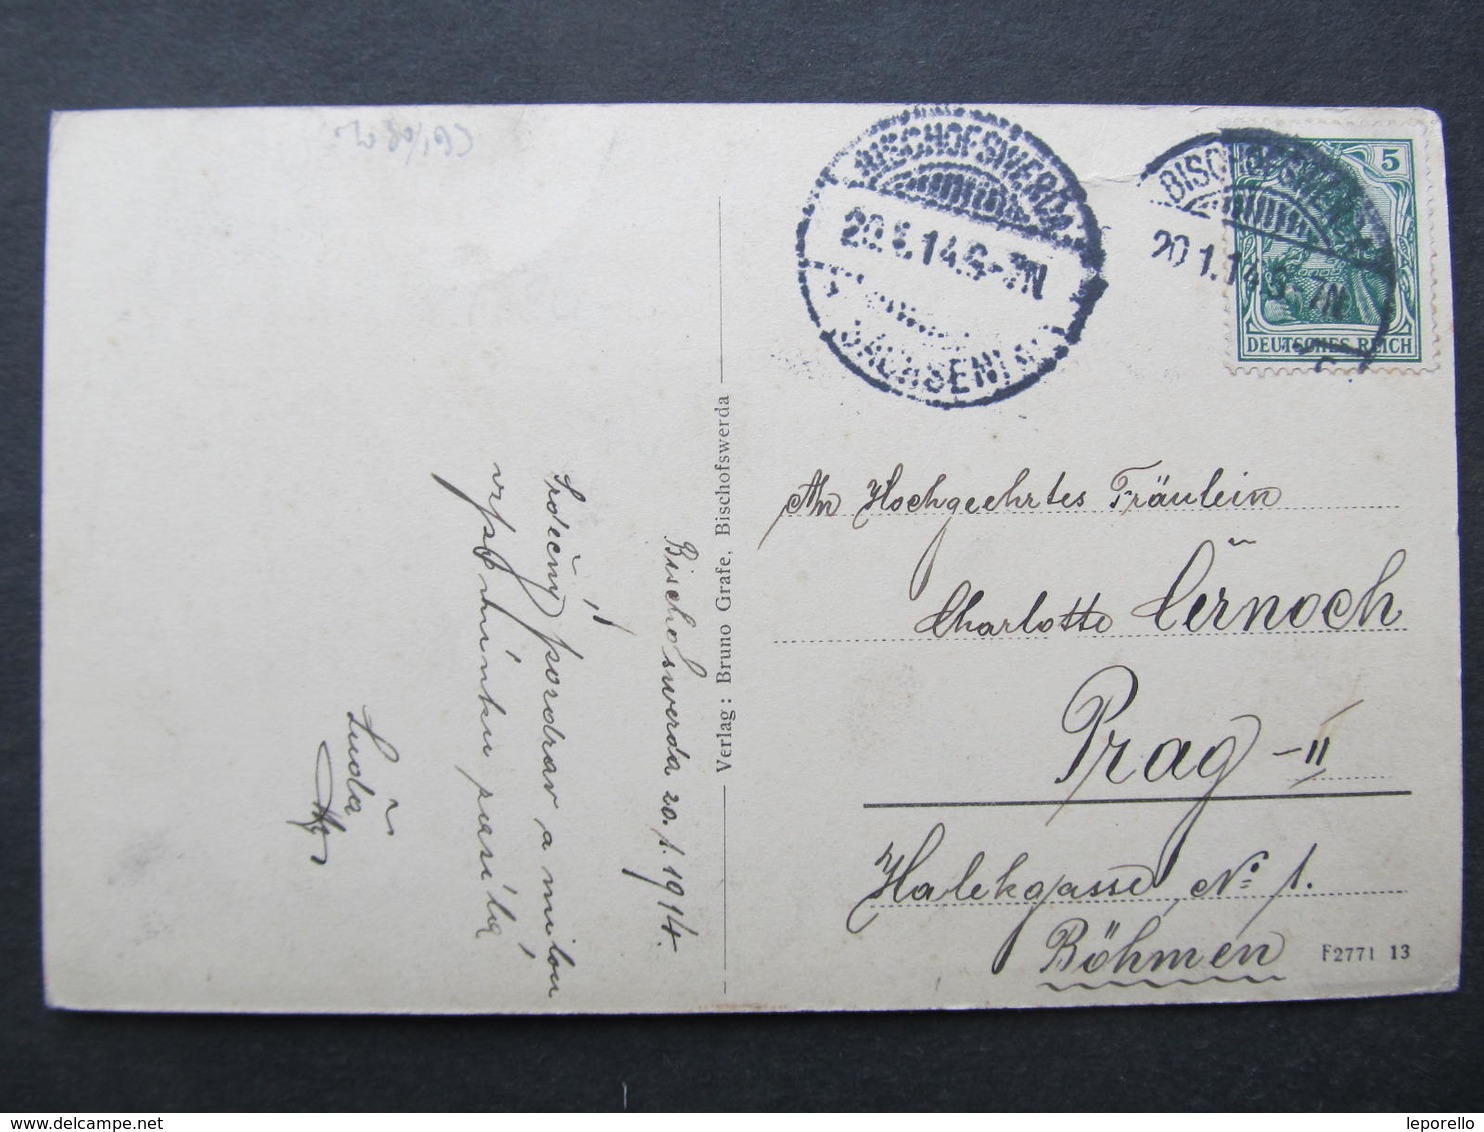 BISCHOFSWERDA
20.1.14.6-7N
SACHSEN
BISCHOFSWERDA
20.1.14.6-7N
5
DEUTSCHES REICH
An Hochgeehrtes Fräulein
Charlotte Černoch
Prag-II
Halekgasse, No 1.
Böhmen
F2771 13
Verlag: Bruno Grafe, Bischofswerda
Bischofswerda 20./1. 1914.
Srdečný pozdrav a milou
vzpomínku posílá
Luďa
delcampe.net
leporello